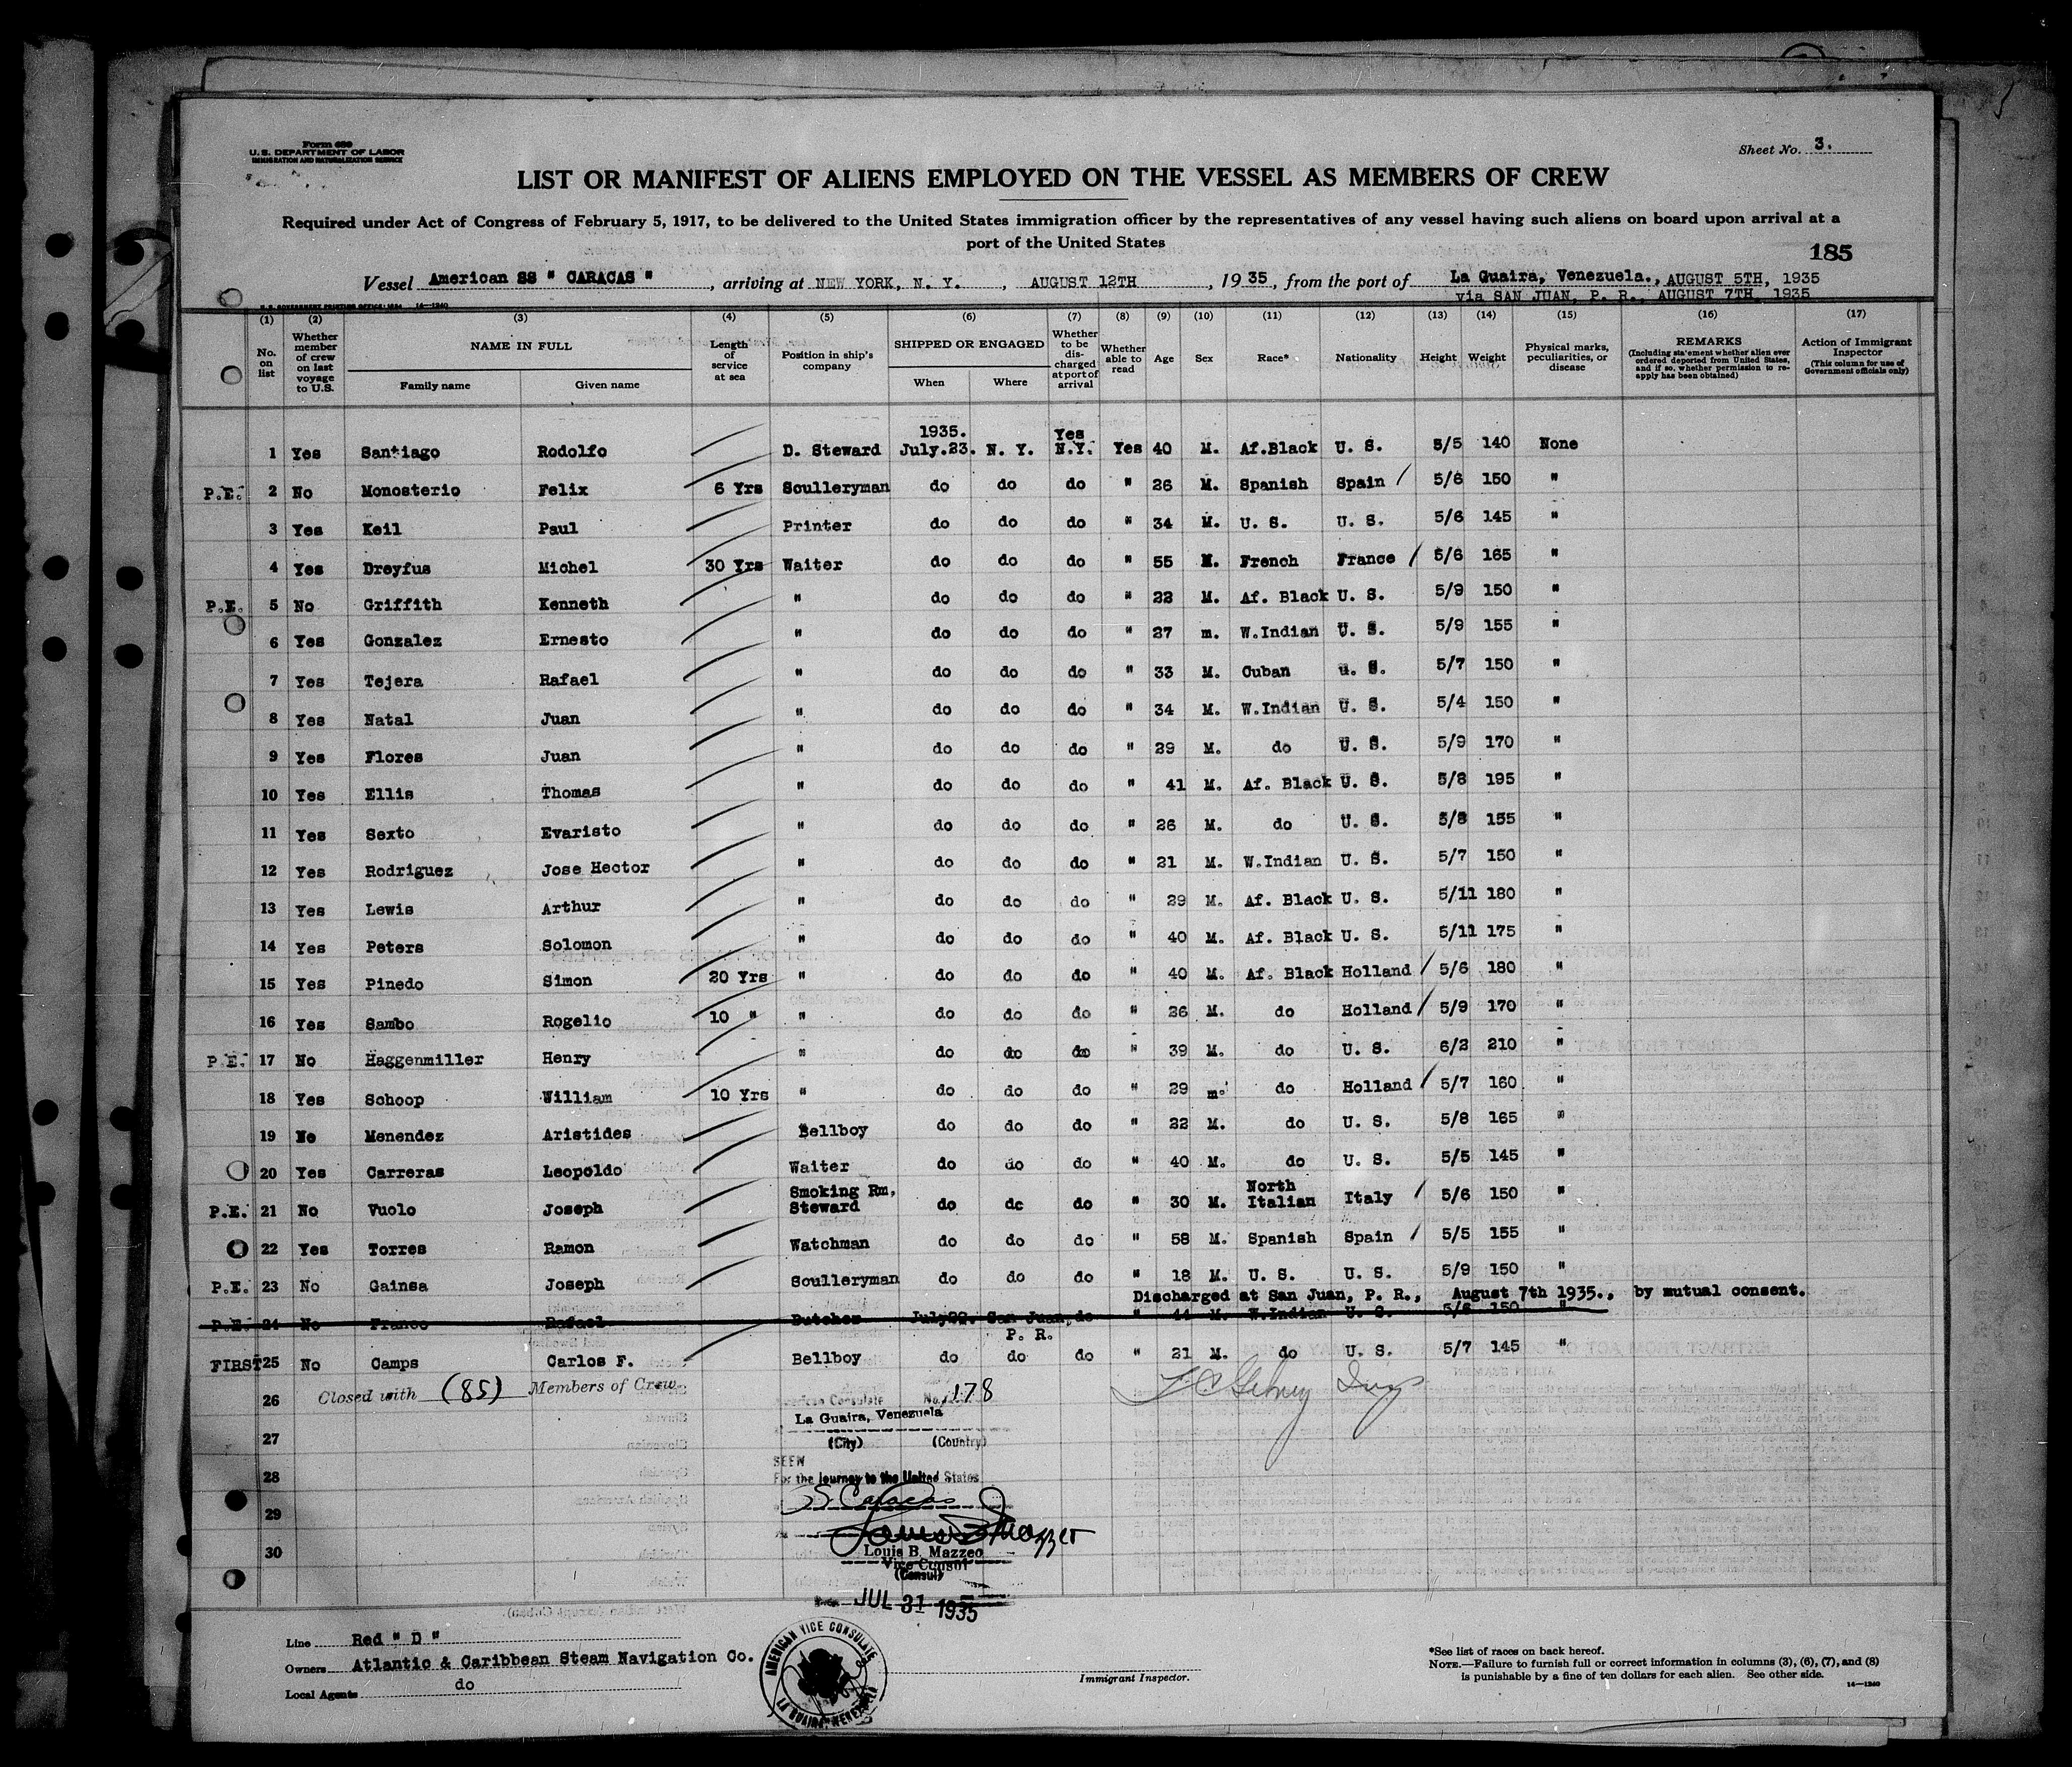 Form 689
U. S. DEPARTMENT OF LABOR
IMMIGRATION AND NATURALIZATION SERVICE
Sheet No. 3.
LIST OR MANIFEST OF ALIENS EMPLOYED ON THE VESSEL AS MEMBERS OF CREW
Required under Act of Congress of February 5, 1917, to be delivered to the United States immigration officer by the representatives of any vessel having such aliens on board upon arrival at a
port of the United States
185
Vessel American SS " CARACAS ", arriving at NEW YORK, N. Y., AUGUST 12TH, 1935, from the port of La Guaira, Venezuela., AUGUST 5TH, 1935
via SAN JUAN, P. R., AUGUST 7TH, 1935
U. S. GOVERNMENT PRINTING OFFICE: 1934 14—1240
(1) (2) (3) (4) (5) (6) (7) (8) (9) (10) (11) (12) (13) (14) (15) (16) (17)
No. on list
Whether member of crew on last voyage to U.S.
NAME IN FULL
Family name
Given name
Length of service at sea
Position in ship's company
SHIPPED OR ENGAGED
When
Where
Whether to be discharged at port of arrival
Whether able to read
Age
Sex
Race*
Nationality
Height
Weight
Physical marks, peculiarities, or disease
REMARKS
(Including statement whether alien ever ordered deported from United States, and if so, whether permission to reapply has been obtained)
Action of Immigrant Inspector
(This column for use of Government officials only)
1935. Yes
1 Yes Santiago Rodolfo D. Steward July.23. N. Y. N.Y. Yes 40 M. Af.Black U. S. 5/5 140 None
P.E. 2 No Monosterio Felix 6 Yrs Sculleryman do do do " 26 M. Spanish Spain / 5/6 150 "
3 Yes Keil Paul Printer do do do " 34 M. U. S. U. S. 5/6 145 "
4 Yes Dreyfus Michel 30 Yrs Waiter do do do " 55 M. French France / 5/6 165 "
P.E. 5 No Griffith Kenneth " do do do " 22 M. Af. Black U. S. 5/9 150 "
6 Yes Gonzalez Ernesto " do do do " 27 m. W.Indian U. S. 5/9 155 "
7 Yes Tejera Rafael " do do do " 33 M. Cuban u. S. 5/7 150 "
8 Yes Natal Juan " do do do " 34 M. W.Indian U. S. 5/4 150 "
9 Yes Flores Juan " do do do " 29 M. do U. S. 5/9 170 "
10 Yes Ellis Thomas " do do do " 41 M. Af. Black U. S. 5/8 195 "
11 Yes Sexto Evaristo " do do do " 26 M. do U. S. 5/8 155 "
12 Yes Rodriguez Jose Hector " do do do " 21 M. W.Indian U. S. 5/7 150 "
13 Yes Lewis Arthur " do do do " 29 M. Af. Black U. S. 5/11 180 "
14 Yes Peters Solomon " do do do " 40 M. Af. Black U. S. 5/11 175 "
15 Yes Pinedo Simon 20 Yrs " do do do " 40 M. Af. Black Holland / 5/6 180 "
16 Yes Sambo Rogelio 10 " " do do do " 26 M. do Holland / 5/9 170 "
P.E. 17 No Haggenmiller Henry " do do do " 39 M. do U. S. 6/2 210 "
18 Yes Schoop William 10 Yrs " do do do " 29 m. do Holland / 5/7 160 "
19 No Menendez Aristides Bellboy do do do " 22 M. do U. S. 5/8 165 "
20 Yes Carreras Leopoldo Waiter do do do " 40 M. do U. S. 5/5 145 "
Smoking Rm, North
P.E. 21 No Vuolo Joseph Steward do dc do " 30 M. Italian Italy / 5/6 150 "
22 Yes Torres Ramon Watchman do do do " 58 M. Spanish Spain / 5/5 155 "
P.E. 23 No Gainsa Joseph Sculleryman do do do " 18 M. U. S. U. S. 5/9 150 "
Discharged at San Juan, P. R., August 7th 1935., by mutual consent.
P.E. 24 No Franco Rafael Butcher July22. San Juan, do " 44 M. W.Indian U. S. 5/6 150 "
P. R.
FIRST 25 No Camps Carlos F. Bellboy do do do " 21 M. do U. S. 5/7 145 "
26 Closed with (85) Members of Crew
American Consulate No. 178
La Guaira, Venezuela
27 (City) (Country)
SEEN
28 For the journey to the United States
SS Caracas
29
30 Louis B. Mazzeo
Vice Consul
(Consul)
JUL 31 1935
AMERICAN VICE CONSULATE
LA GUAIRA, VENEZUELA
Line Red " D "
Owners Atlantic & Caribbean Steam Navigation Co.
Local Agents do
Immigrant Inspector.
*See list of races on back hereof.
NOTE.—Failure to furnish full or correct information in columns (3), (6), (7), and (8)
is punishable by a fine of ten dollars for each alien. See other side.
14—1240